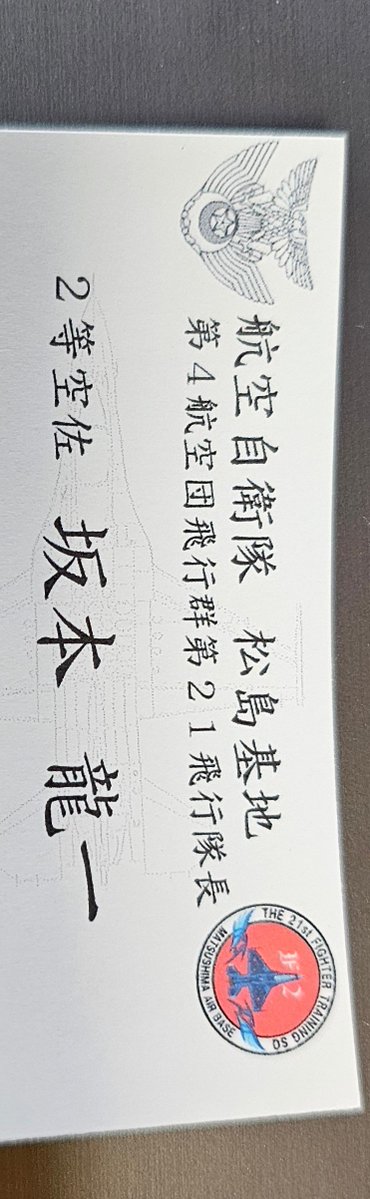 航空自衛隊 松島基地
第4航空団飛行群第21飛行隊長
2等空佐 坂本 龍一
THE 21st FIGHTER TRAINING SQ
F-2
MATSUSHIMA AIR BASE